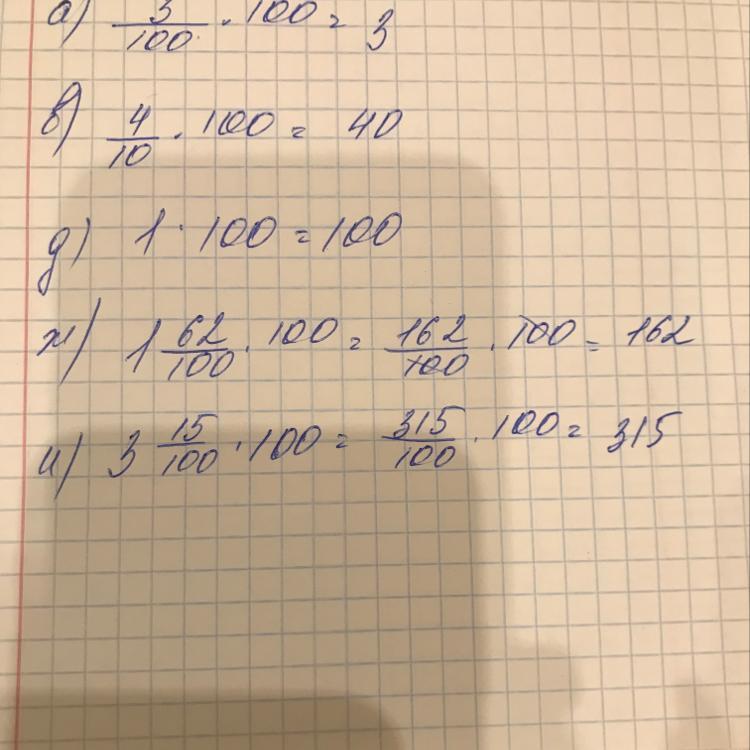 а) 3/100 · 100 = 3
в) 4/10 · 100 = 40
д) 1 · 100 = 100
ж) 1 62/100 · 100 = 162/100 · 100 = 162
и) 3 15/100 · 100 = 315/100 · 100 = 315